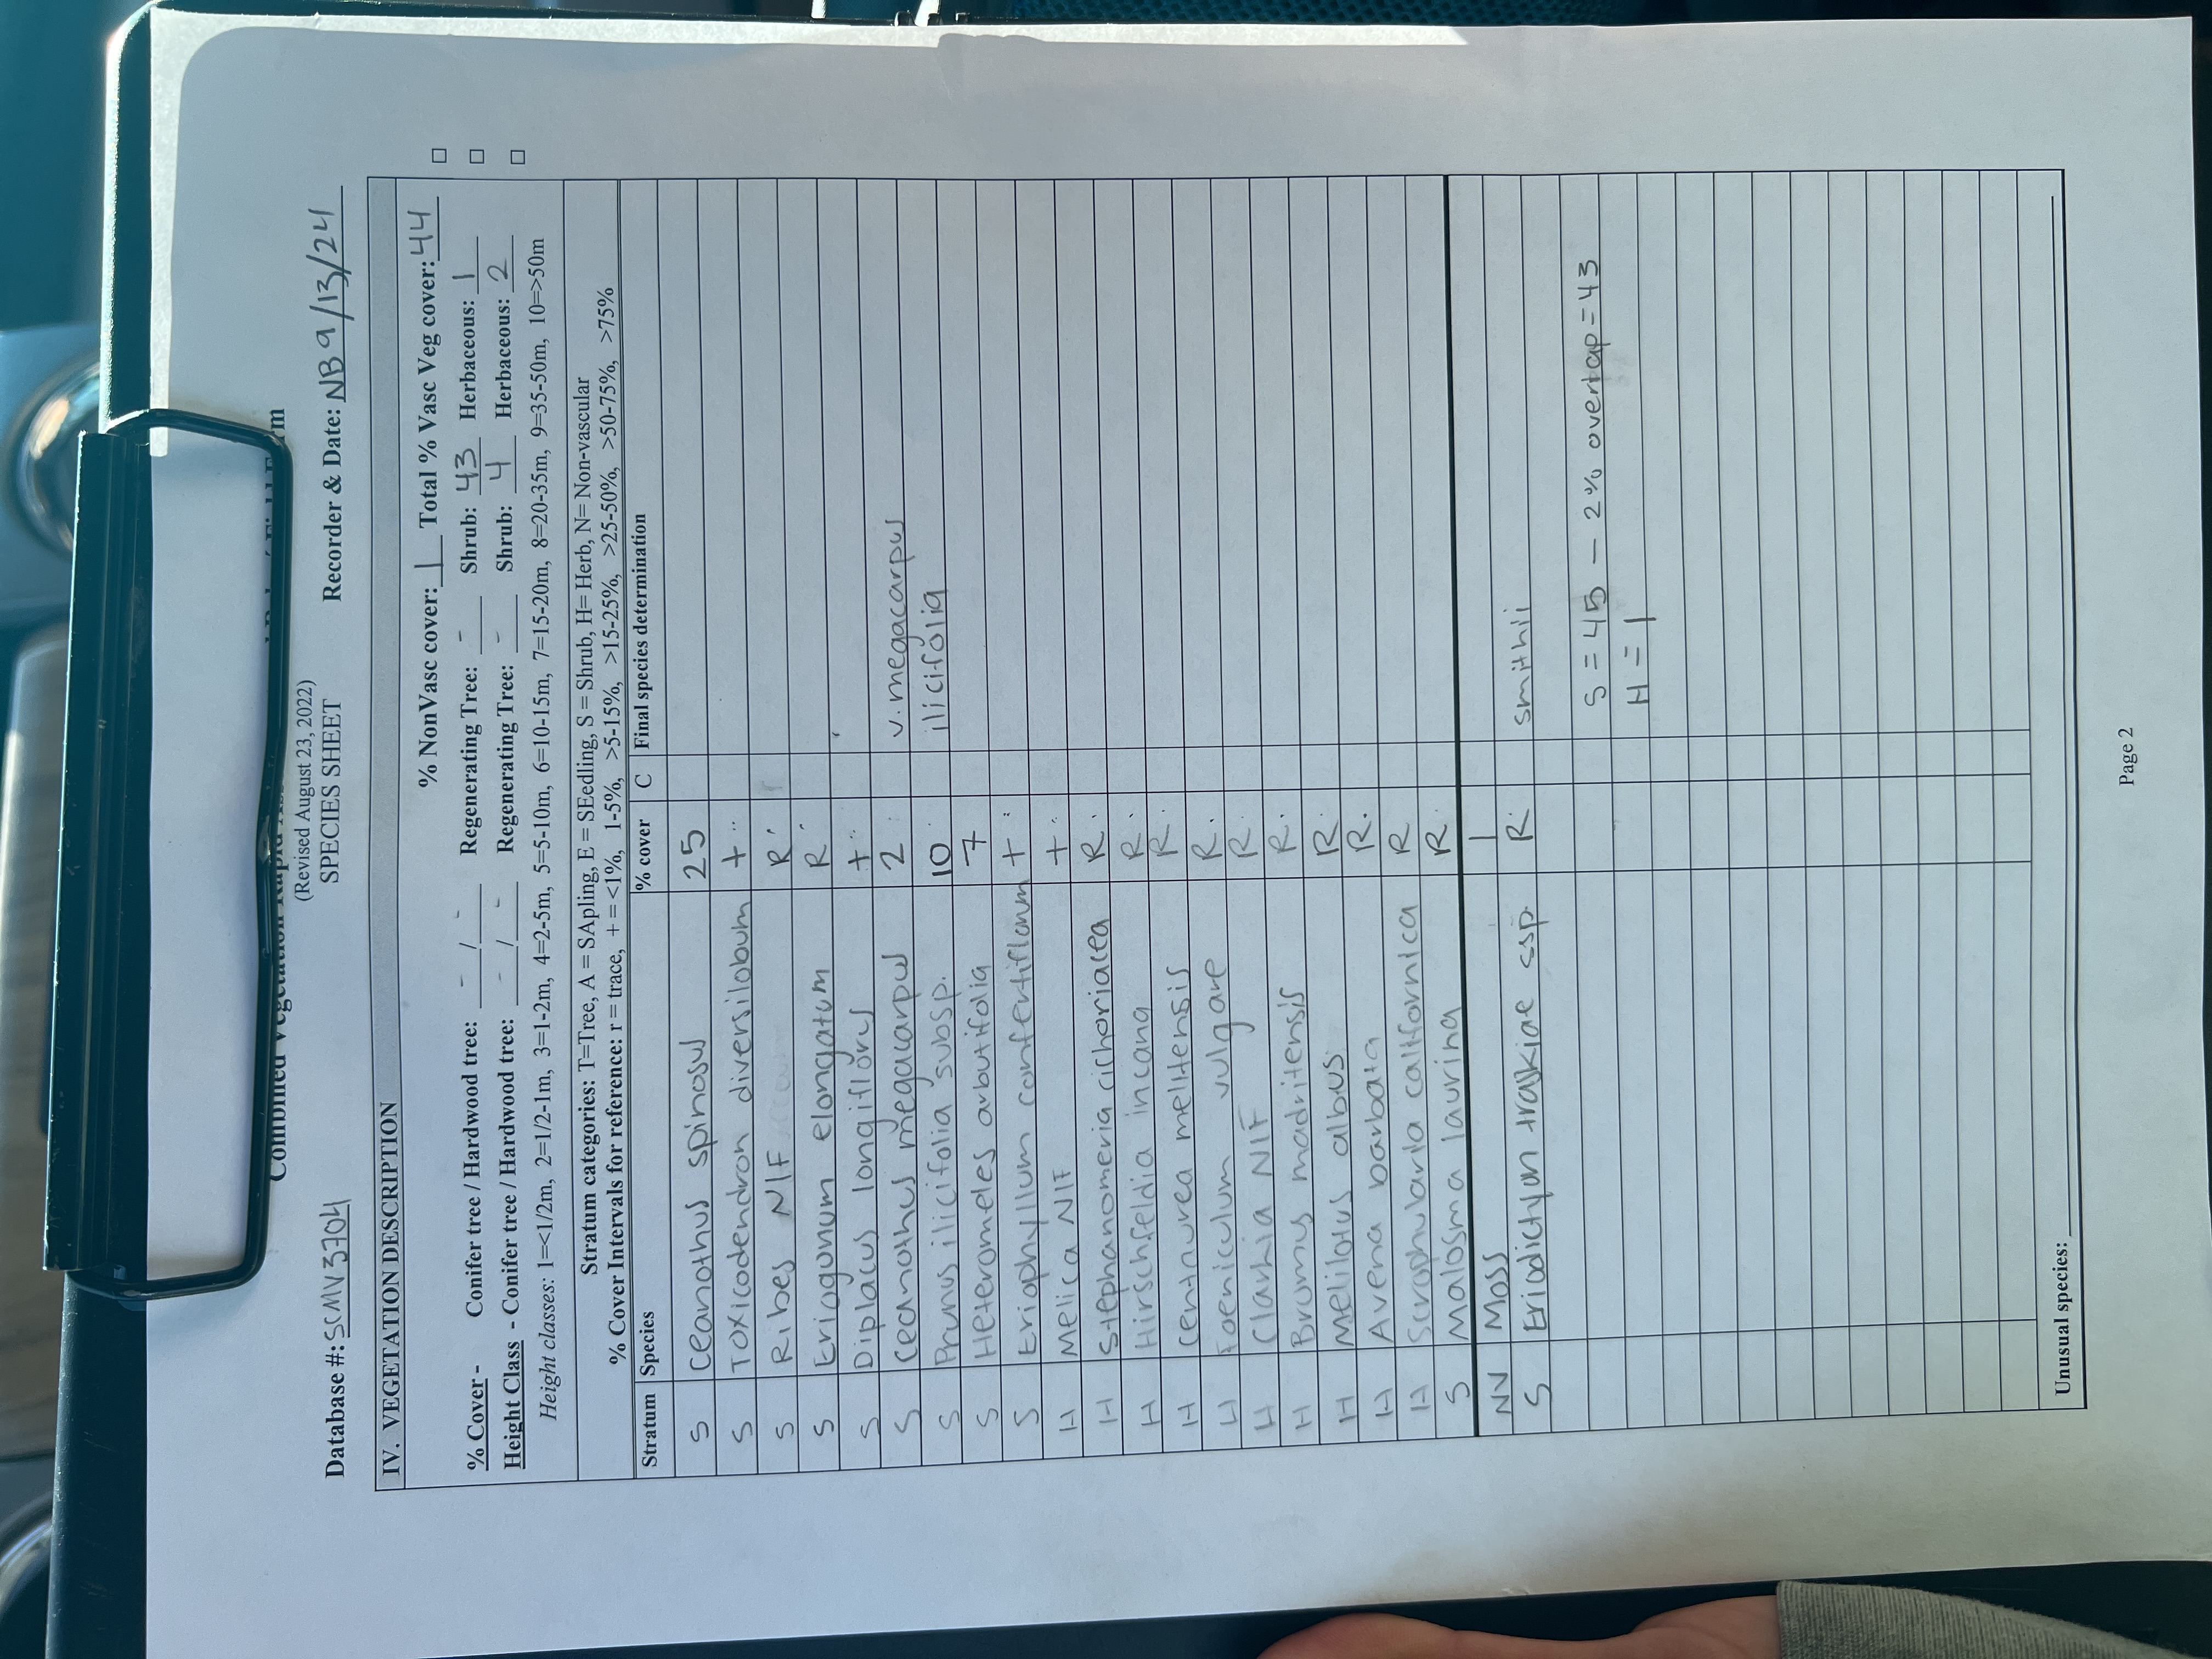 Combined Vegetation Rapid
(Revised August 23, 2022)
SPECIES SHEET
Database #: SCMV3704 Recorder & Date: NB 9/13/24
IV. VEGETATION DESCRIPTION
% NonVasc cover: 1 Total % Vasc Veg cover: 44
% Cover - Conifer tree / Hardwood tree: - / - Regenerating Tree: - Shrub: 43 Herbaceous: 1
Height Class - Conifer tree / Hardwood tree: - / - Regenerating Tree: - Shrub: 4 Herbaceous: 2
Height classes: 1=<1/2m, 2=1/2-1m, 3=1-2m, 4=2-5m, 5=5-10m, 6=10-15m, 7=15-20m, 8=20-35m, 9=35-50m, 10=>50m
Stratum categories: T=Tree, A = SApling, E = SEedling, S = Shrub, H= Herb, N= Non-vascular
% Cover Intervals for reference: r = trace, + = <1%, 1-5%, >5-15%, >15-25%, >25-50%, >50-75%, >75%
Stratum Species % cover C Final species determination
S Ceanothus spinosus 25
S Toxicodendron diversilobum +
S Ribes NIF R
S Eriogonum elongatum R
S Diplacus longiflorus +
S Ceanothus megacarpus 2 v. megacarpus
S Prunus ilicifolia subsp. 10 ilicifolia
S Heteromeles arbutifolia 7
S Eriophyllum confertiflorum +
H Melica NIF +
H Stephanomeria cichoriacea R
H Hirschfeldia incana R
H Centaurea melitensis R
H Foeniculum vulgare R
H Clarkia NIF R
H Bromus madritensis R
H Melilotus albus R
H Avena barbata R
H Scrophularia californica R
S Malosma laurina R
NV Moss 1
S Eriodictyon traskiae ssp. R smithii
S = 45 - 2% overlap = 43
H = 1
Unusual species:
Page 2